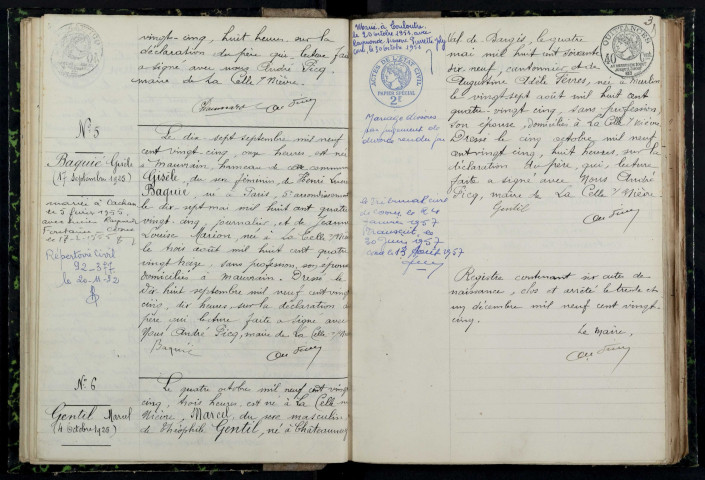 vingt-cinq, huit heures, sur la
déclaration du père qui, lecture faite
a signé avec nous André Picq,
maire de La Celle s/ Nièvre.
N° 5
Baquié Gisèle
(17 septembre 1925)
mariée à Cachan
le 5
Répertoire Civil
92-377
le 20-11-92
Le dix sept septembre mil neuf
cent vingt-cinq, onze heures, est née
à Mauvrain, hameau de commune
Gisèle, du sexe féminin, de Henri
Baquié, né à Paris, arrondissement
le dix sept mai mil huit cent quatre
vingt-cinq, journalier, et de Jeanne
Louise Marion, née à La Celle s/ Nièvre
le trois août mil huit cent quatre
vingt-treize, sans profession, son épouse
domiciliés à Mauvrain. Dressé le
dix huit septembre mil neuf cent vingt
cinq, dix heures, sur la déclaration du
père qui, lecture faite a signé avec
Nous André Picq, maire de La Celle s/ Nièvre
Baquié
N° 6
Gentil Marcel
(4 octobre 1925)
Le quatre octobre mil neuf cent vingt
cinq, trois heures, est né à La Celle s/
Nièvre, Marcel, du sexe masculin
de Théophile Gentil, né à Châteauneuf
3
ACTES DE L'ETAT CIVIL
PAPIER SPECIAL
2F
QUITTANCES
Mariage dissous
par jugement de
divorce rendu par
le Tribunal civil
de Cosne, le 24
janvier 1957
Transcrit le
30 Juin 1957
Val de Bargis, le quatre
mai mil huit cent soixante
dix neuf, cantonnier, et de
Augustine Adèle née à Murlin
le vingt sept août mil huit cent
quatre-vingt-cinq, sans profession,
son épouse, domiciliés à La Celle s/ Nièvre.
Dressé le cinq octobre, mil neuf
cent vingt cinq, huit heures, sur la
déclaration du père qui, lecture
faite a signé avec Nous André
Picq, maire de La Celle s/ Nièvre
Gentil
Registre contenant six actes de
naissance, clos et arrêté le trente et
un décembre mil neuf cent vingt-
cinq.
Le Maire,